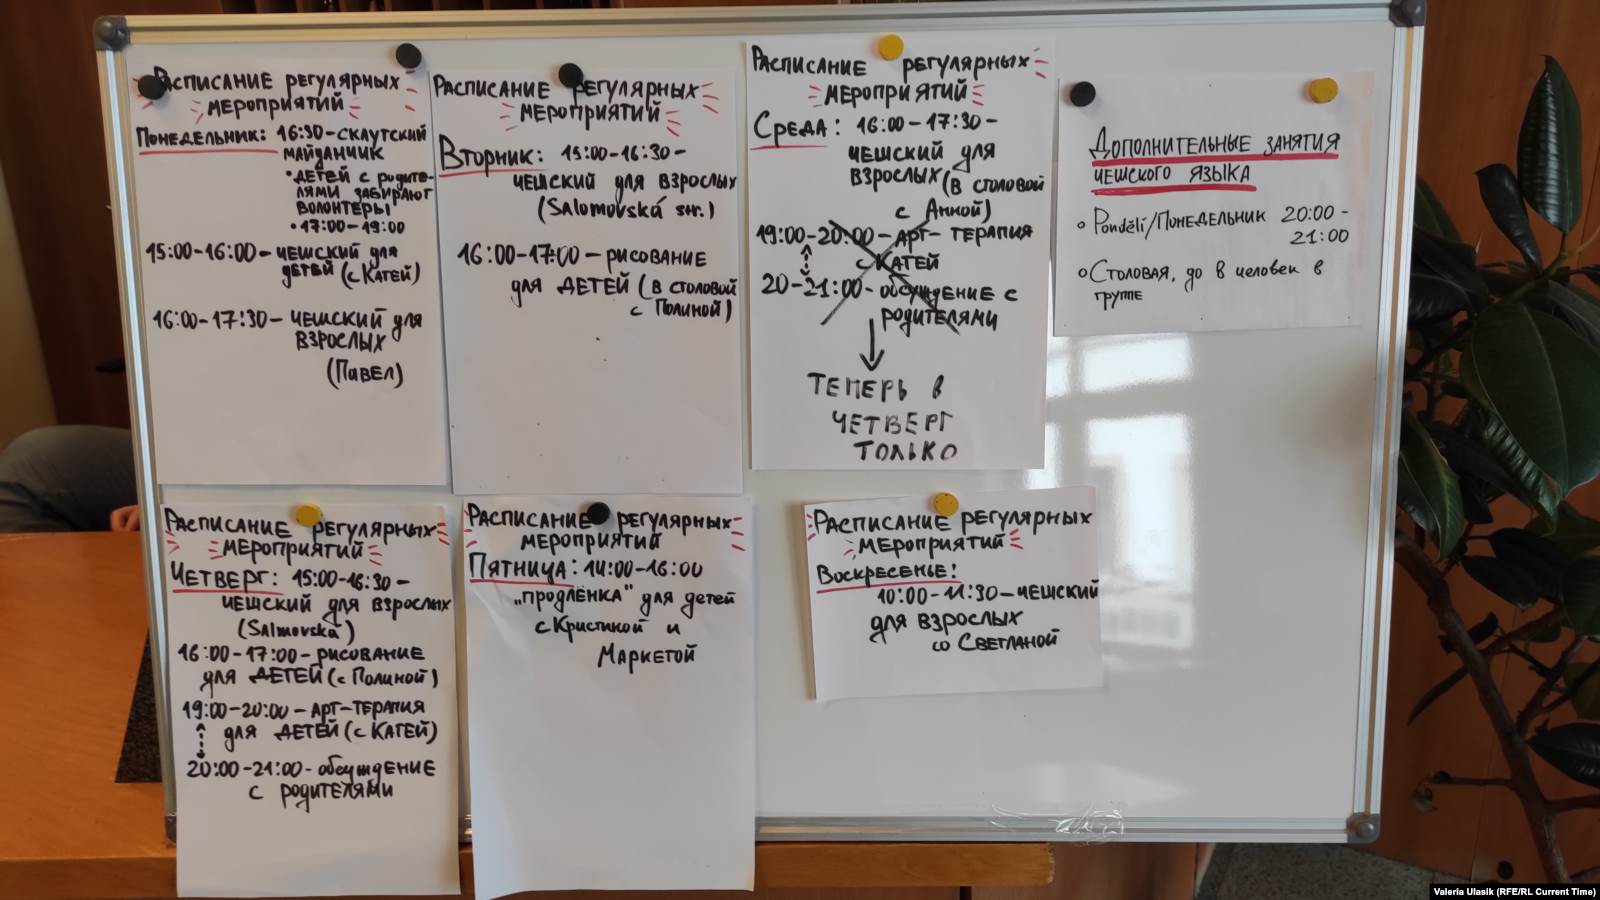 Расписание регулярных
мероприятий
Понедельник: 16:30 – скаутский
майданчик
• детей с родите-
лями забирают
волонтеры
• 17:00 – 19:00
15:00 – 16:00 – чешский для
детей (с Катей)
16:00 – 17:30 – чешский для
взрослых
(Павел)
Расписание регулярных
мероприятий
Вторник: 15:00 – 16:30 –
чешский для взрослых
(Salomovská str.)
16:00 – 17:00 – рисование
для детей (в столовой
с Полиной)
Расписание регулярных
мероприятий
Среда: 16:00 – 17:30 –
чешский для
взрослых (в столовой
с Анной)
19:00 – 20:00 – арт-терапия
с Катей
20 – 21:00 – обсуждение с
родителями
Теперь в
четверг
только
Дополнительные занятия
чешского языка
• Pondělí/Понедельник 20:00 -
21:00
• Столовая, до 8 человек в
группе
Расписание регулярных
мероприятий
Четверг: 15:00 – 16:30 –
чешский для взрослых
(Salmovská)
16:00 – 17:00 – рисование
для детей (с Полиной)
19:00 – 20:00 – арт-терапия
для детей (с Катей)
20:00 – 21:00 – обсуждение
с родителями
Расписание регулярных
мероприятий
Пятница: 14:00 – 16:00
„продлёнка" для детей
с Кристиной и
Маркетой
Расписание регулярных
мероприятий
Воскресенье!
10:00 – 11:30 – чешский
для взрослых
со Светланой
Valeria Ulasik (RFE/RL Current Time)